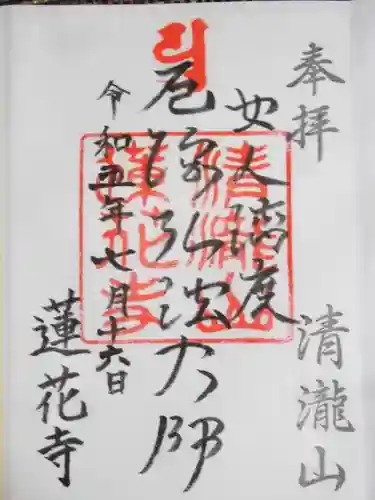 奉拝
清瀧山
女人済度
厄除弘法大師
令和五年七月十六日
蓮花寺
清瀧山
蓮花寺